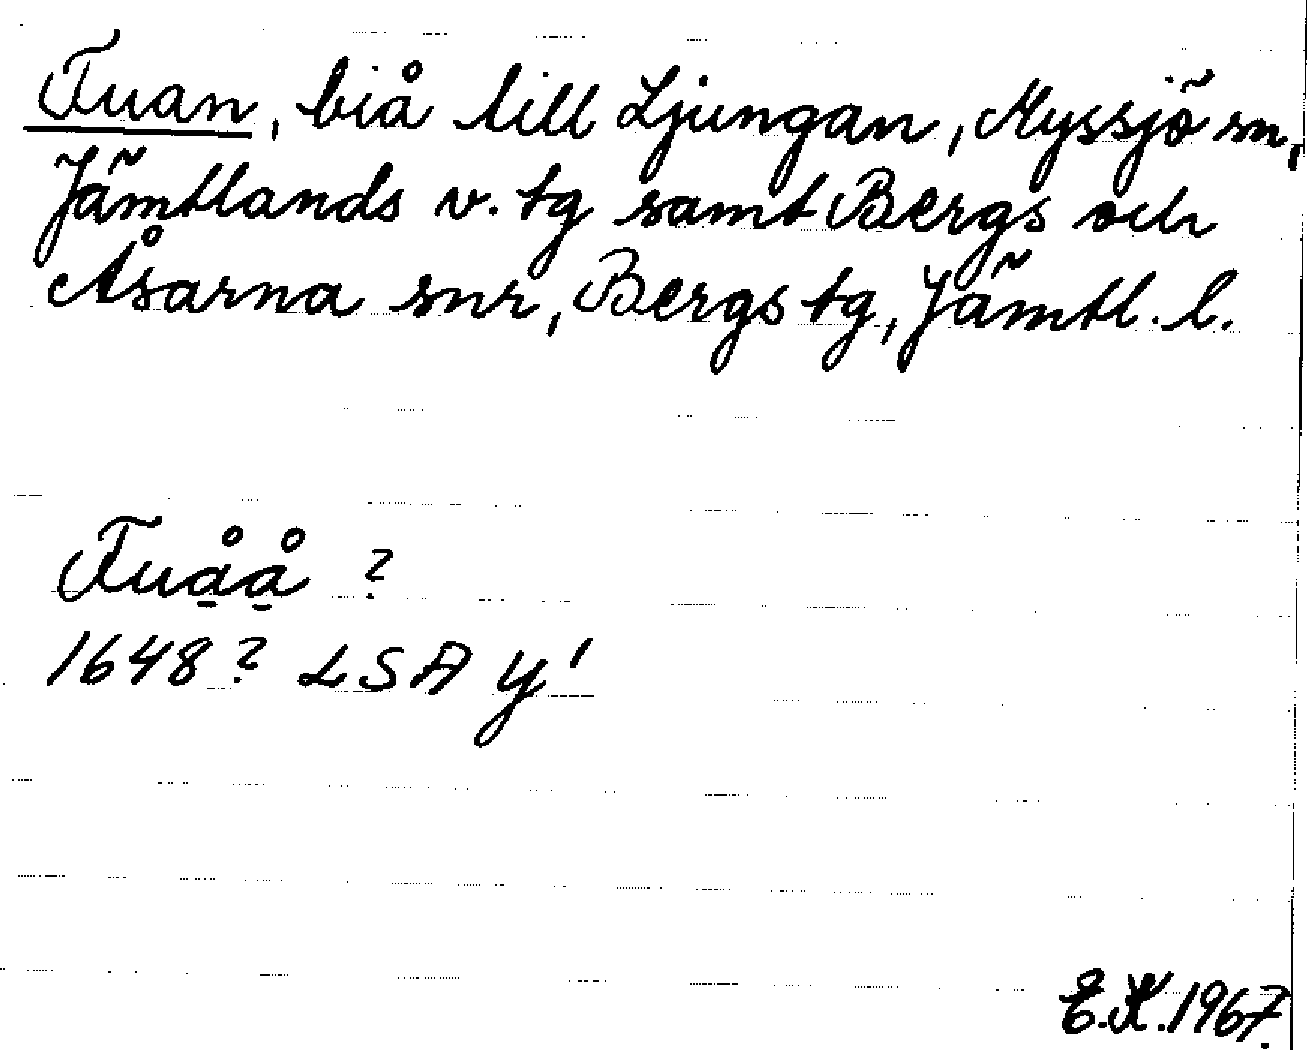 Fuan, biå till Ljungan, Myssjö sn,
Jämtlands v. tg samt Bergs och
Åsarna snr, Bergs tg, Jämtl. l.
Fuåå ?
1648? LSA y'
E.K. 1967.